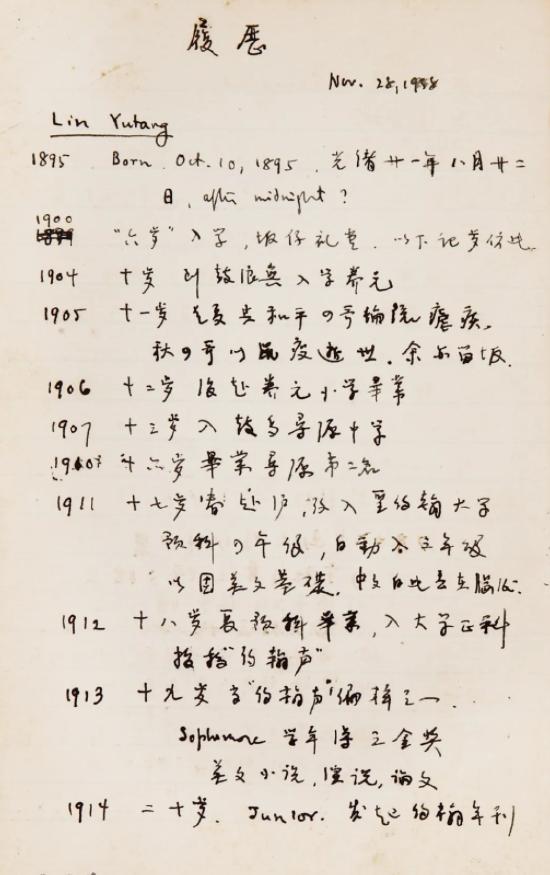 履歷
Nov. 28, 19
Lin Yutang
1895 Born Oct. 10, 1895. 光緒廿一年八月廿二
日, after midnight?
1900
"六岁"入学,坂仔礼堂. 以下记岁仿此
1904 十岁 到鼓浪嶼入学养元
1905 十一岁
秋 以鼠疫逝世. 余 留坂.
1906 十二岁 復赴养元小学畢業
1907 十三岁 入鼓 尋源中学
十六岁畢業尋源第二名
1911 十七岁春赴沪, 入圣约翰大学
预科 年级, 自動 入 年级
以 英文基礎, 中文自此丢在腦
1912 十八岁夏预科畢業, 入大学正科
投稿"约翰声"
1913 十九岁 "约翰声"编辑之一.
Sophomore 学年得三金奖
英文小说, 演说, 论文
1914 二十岁. Junior. 发起约翰年刊